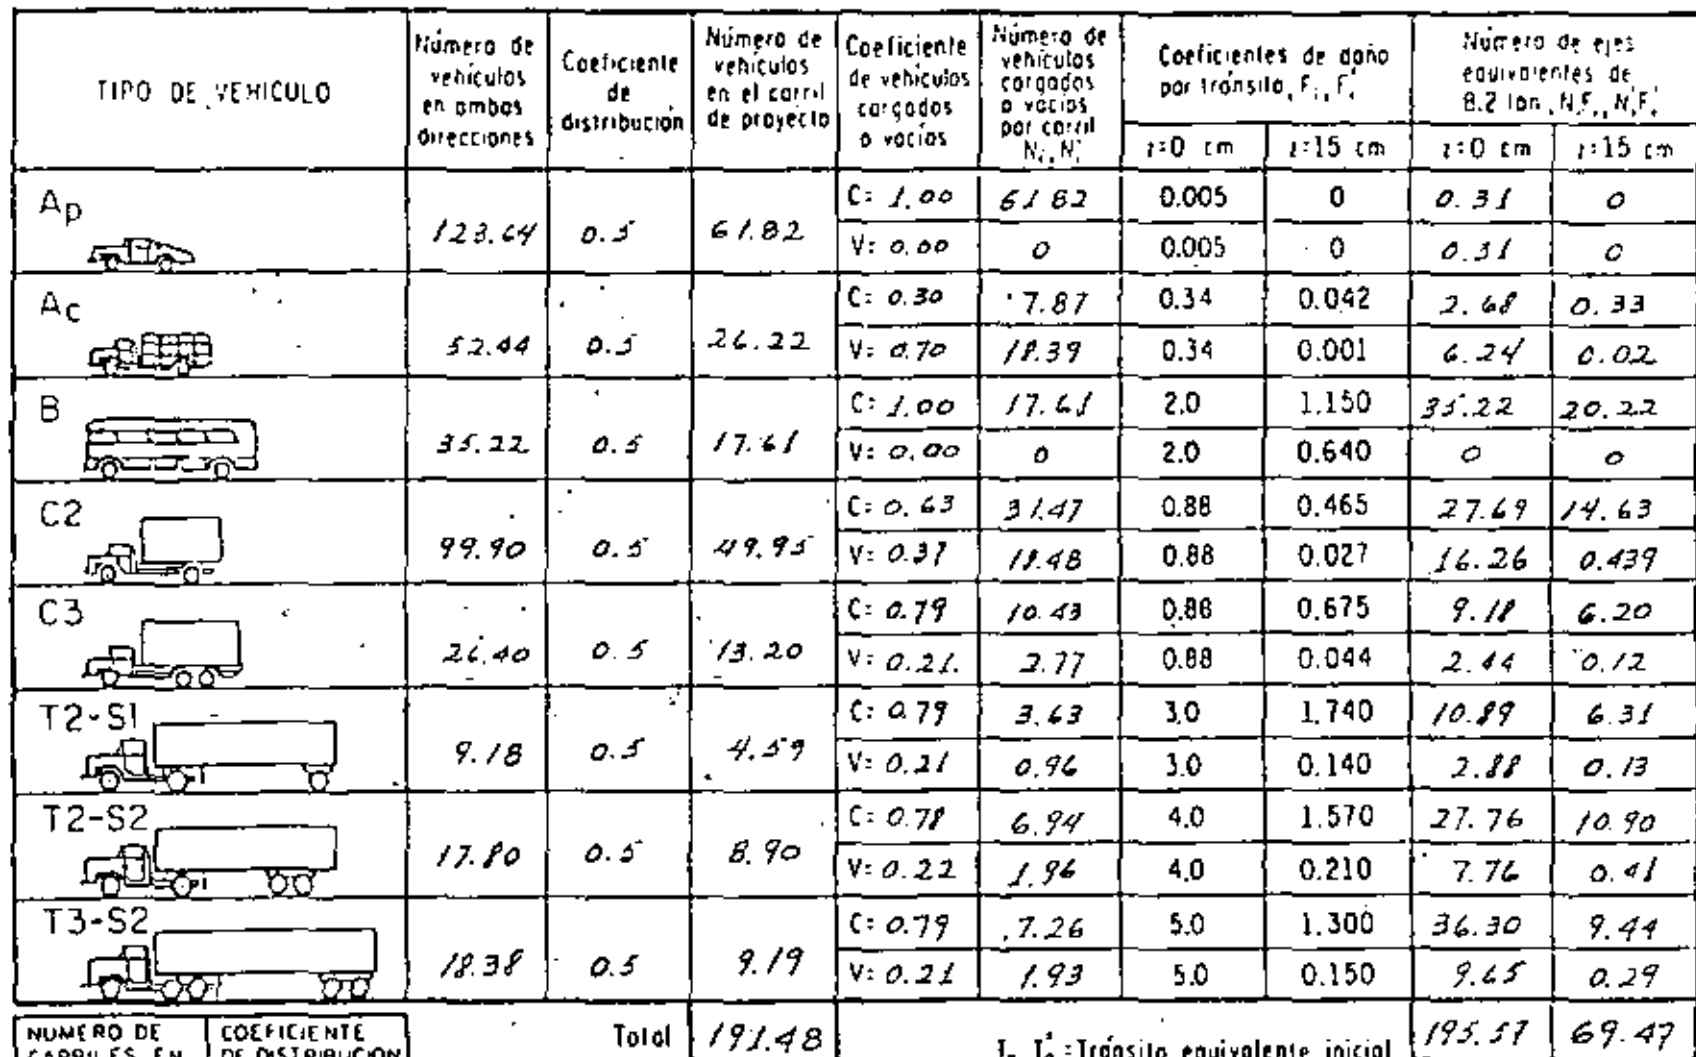 TIPO DE VEHICULO | Número de vehículos en ambas direcciones | Coeficiente de distribución | Número de vehículos en el carril de proyecto | Coeficiente de vehículos cargados o vacíos | Número de vehículos cargados o vacíos por carril | Coeficientes de daño por tránsito, | Número de ejes equivalentes de 8.2 ton,
z=0 cm | z=15 cm | z=0 cm | z=15 cm
Ap | 123.64 | 0.5 | 61.82 | C: 1.00 | 61 82 | 0.005 | 0 | 0.31 | 0
V: 0.00 | 0 | 0.005 | 0 | 0.31 | 0
Ac | 52.44 | 0.5 | 26.22 | C: 0.30 | 7.87 | 0.34 | 0.042 | 2.68 | 0.33
V: 0.70 | 18.39 | 0.34 | 0.001 | 6.24 | 0.02
B | 35.22 | 0.5 | 17.61 | C: 1.00 | 17.61 | 2.0 | 1.150 | 35.22 | 20.22
V: 0.00 | 0 | 2.0 | 0.640 | 0 | 0
C2 | 99.90 | 0.5 | 49.95 | C: 0.63 | 31.47 | 0.88 | 0.465 | 27.69 | 14.63
V: 0.37 | 18.48 | 0.88 | 0.027 | 16.26 | 0.439
C3 | 26.40 | 0.5 | 13.20 | C: 0.79 | 10.43 | 0.88 | 0.675 | 9.18 | 6.20
V: 0.21. | 2.77 | 0.88 | 0.044 | 2.44 | 0.12
T2-S1 | 9.18 | 0.5 | 4.59 | C: 0.79 | 3.63 | 3.0 | 1.740 | 10.89 | 6.31
V: 0.21 | 0.96 | 3.0 | 0.140 | 2.88 | 0.13
T2-S2 | 17.80 | 0.5 | 8.90 | C: 0.78 | 6.94 | 4.0 | 1.570 | 27.76 | 10.90
V: 0.22 | 1.96 | 4.0 | 0.210 | 7.76 | 0.41
T3-S2 | 18.38 | 0.5 | 9.19 | C: 0.79 | 7.26 | 5.0 | 1.300 | 36.30 | 9.44
V: 0.21 | 1.93 | 5.0 | 0.150 | 9.65 | 0.29
NUMERO DE | COEFICIENTE | Total | 191.48 | Tránsito equivalente inicial | 195.57 | 69.47
CARRILES EN | DE DISTRIBUCION